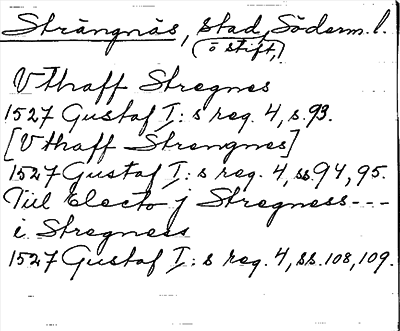 Strängnäs, stad, Söderm. l.
(o stift,)
Vthaff Stregnes
1527 Gustaf I:s reg. 4, s. 93.
[Vthaff Strengnes]
1527 Gustaf I:s reg. 4, ss. 94, 95.
Till Electo j Stregness---
i Stregness
1527 Gustaf I:s reg. 4, ss. 108, 109.